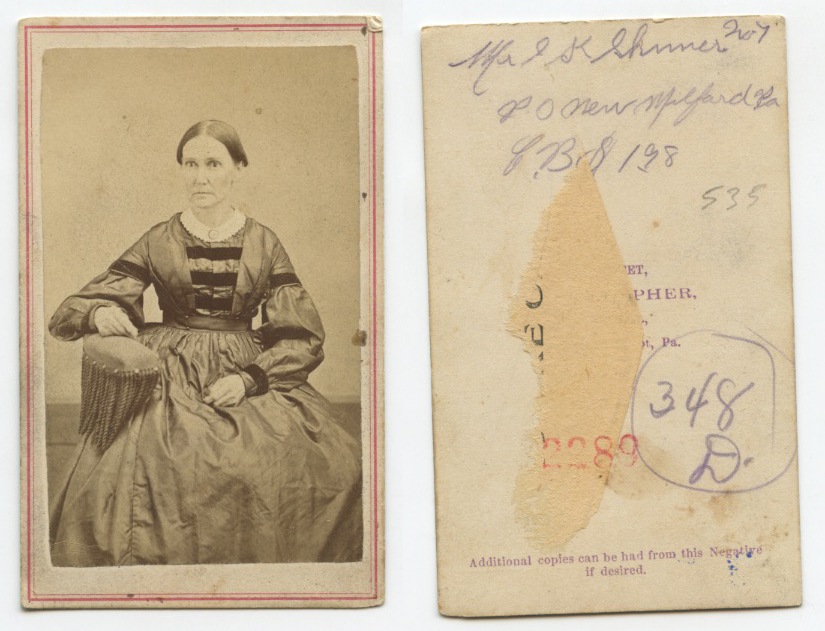 No 7
Mr I K Skinner
P O New Milford Pa
C.B. & 198
535
ET,
PHER,
t, Pa.
EC
2289
348
D.
Additional copies can be had from this Negative
if desired.